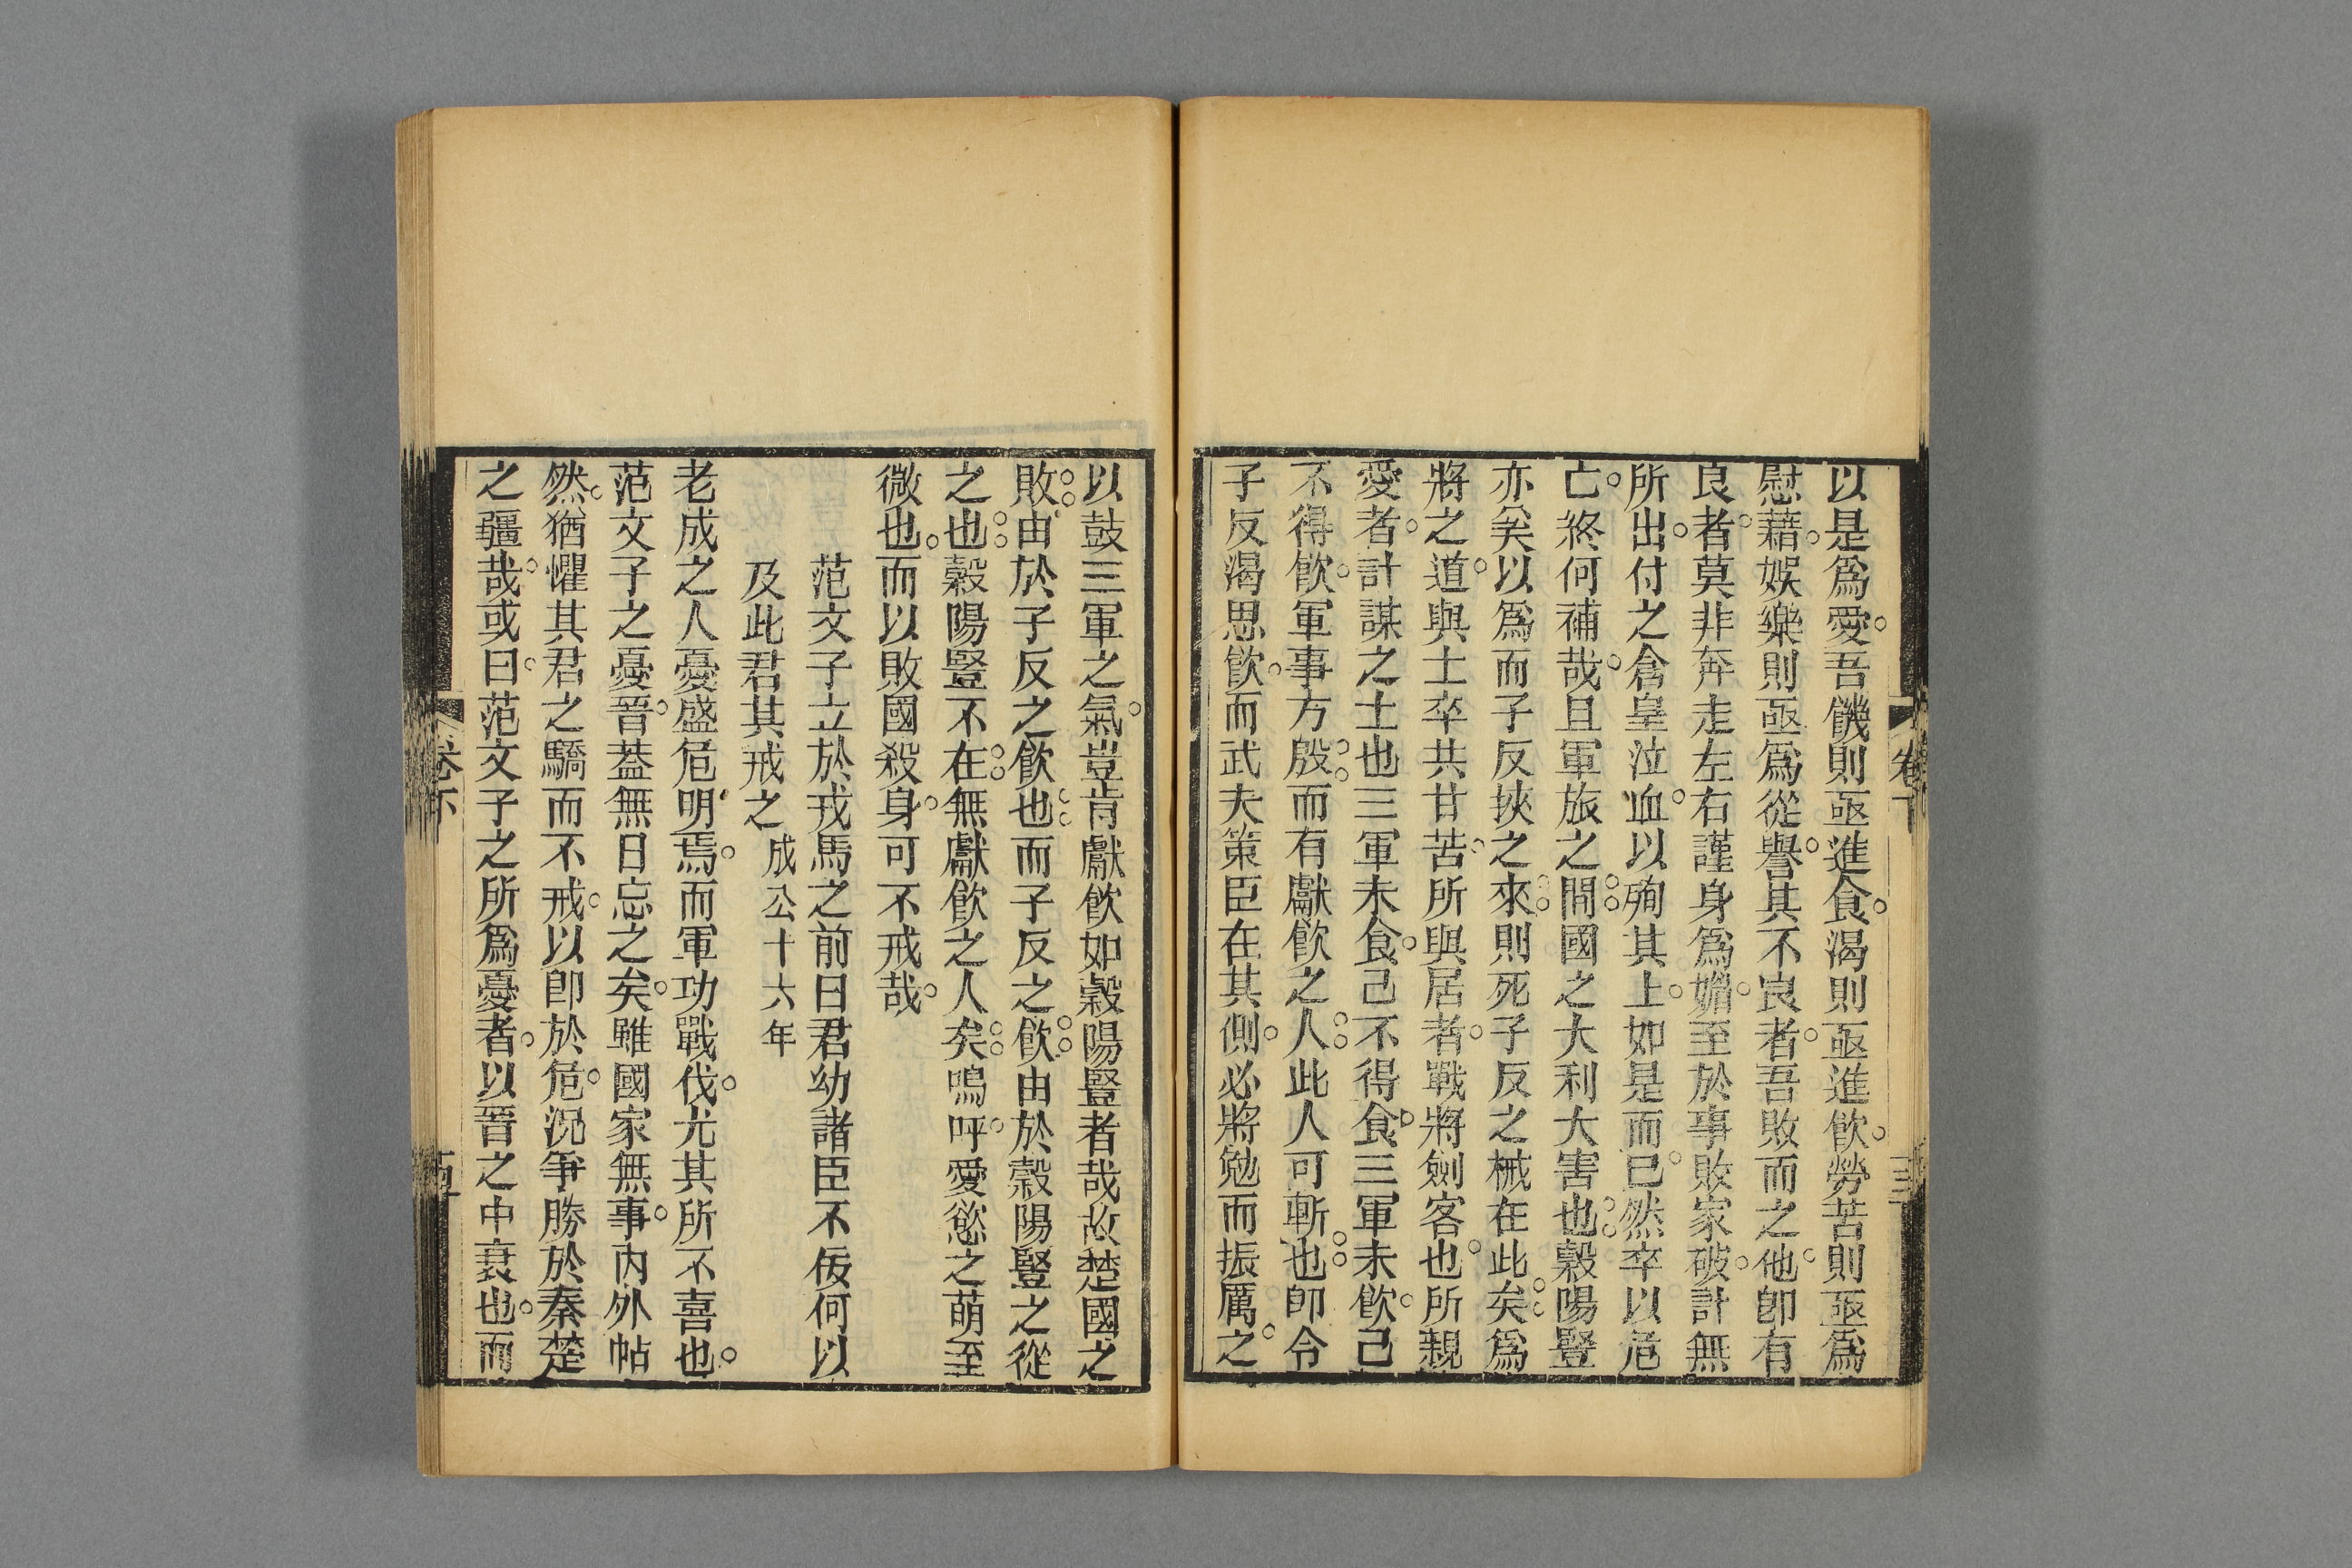 以是爲愛吾饑則亟進食渴則亟進飮勞苦則亟爲
慰藉娛樂則亟爲從譽其不良者吾敗而之他卽有
良者莫非奔走左右謹身爲媚至於事敗家破計無
所出付之倉皇泣血以殉其上如是而已然卒以危
亡終何補哉且軍旅之間國之大利大害也穀陽豎
亦矣以爲而子反挾之來則死子反之械在此矣爲
將之道與士卒共甘苦所與居者戰將劍客也所親
愛者計謀之士也三軍未食己不得食三軍未飮己
不得飮軍事方殷而有獻飮之人此人可斬也卽令
子反渴思飮而武夫策臣在其側必將勉而振厲之
以鼓三軍之氣豈肯獻飮如穀陽豎者哉故楚國之
敗由於子反之飮也而子反之飮由於穀陽豎之從
之也穀陽豎不在無獻飮之人矣嗚呼愛慾之萌至
微也而以敗國殺身可不戒哉
范文子立於戎馬之前曰君幼諸臣不佞何以
及此君其戒之成公十六年
老成之人憂盛危明焉而軍功戰伐尤其所不喜也
范文子之憂晉葢無日忘之矣雖國家無事內外帖
然猶懼其君之驕而不戒以卽於危況爭勝於秦楚
之疆哉或曰范文子之所爲憂者以晉之中衰也而
卷下
卷下